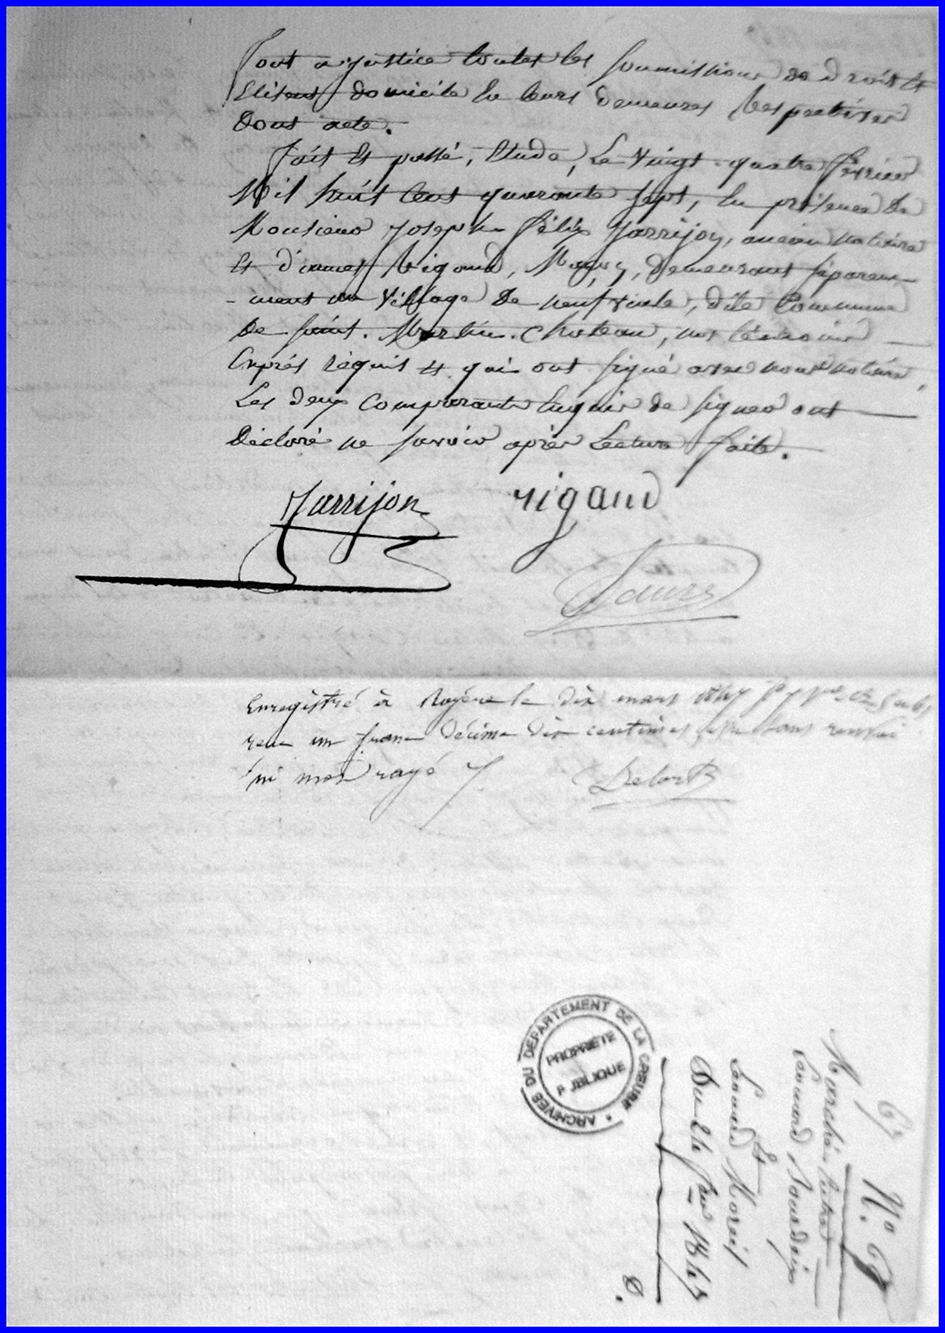 font a justice toutes les soumissions de droit et
Elisent domicile en leurs demeures respectives
Dont acte.
Fait et passé, Etude, Le vingt quatre février
Mil huit cent quarante sept, en présence de
Monsieur Joseph félix Jarrijon, ancien notaire
et d'annet Rigaud, Maçon, demeurant séparem-
-ment au village de neufvialle, dite Commune
De saint. Martin. Chateau, nos témoins
Exprés réquis et qui ont signé avec nous notaire,
Les deux Comparants enquis de signer ont
Déclaré ne savoir après Lecture faite.
Jarrijon rigaud
Enregistré à Royère le dix mars 1847
reçu un franc décime dix centimes sans renvoi
ni mot rayé
Delort
ARCHIVES DU DEPARTEMENT DE LA CREUSE
PROPRIÉTÉ PUBLIQUE
Nº 63
Marché entre
Leonard
Et
Leonard
Du 24 fevr 1847